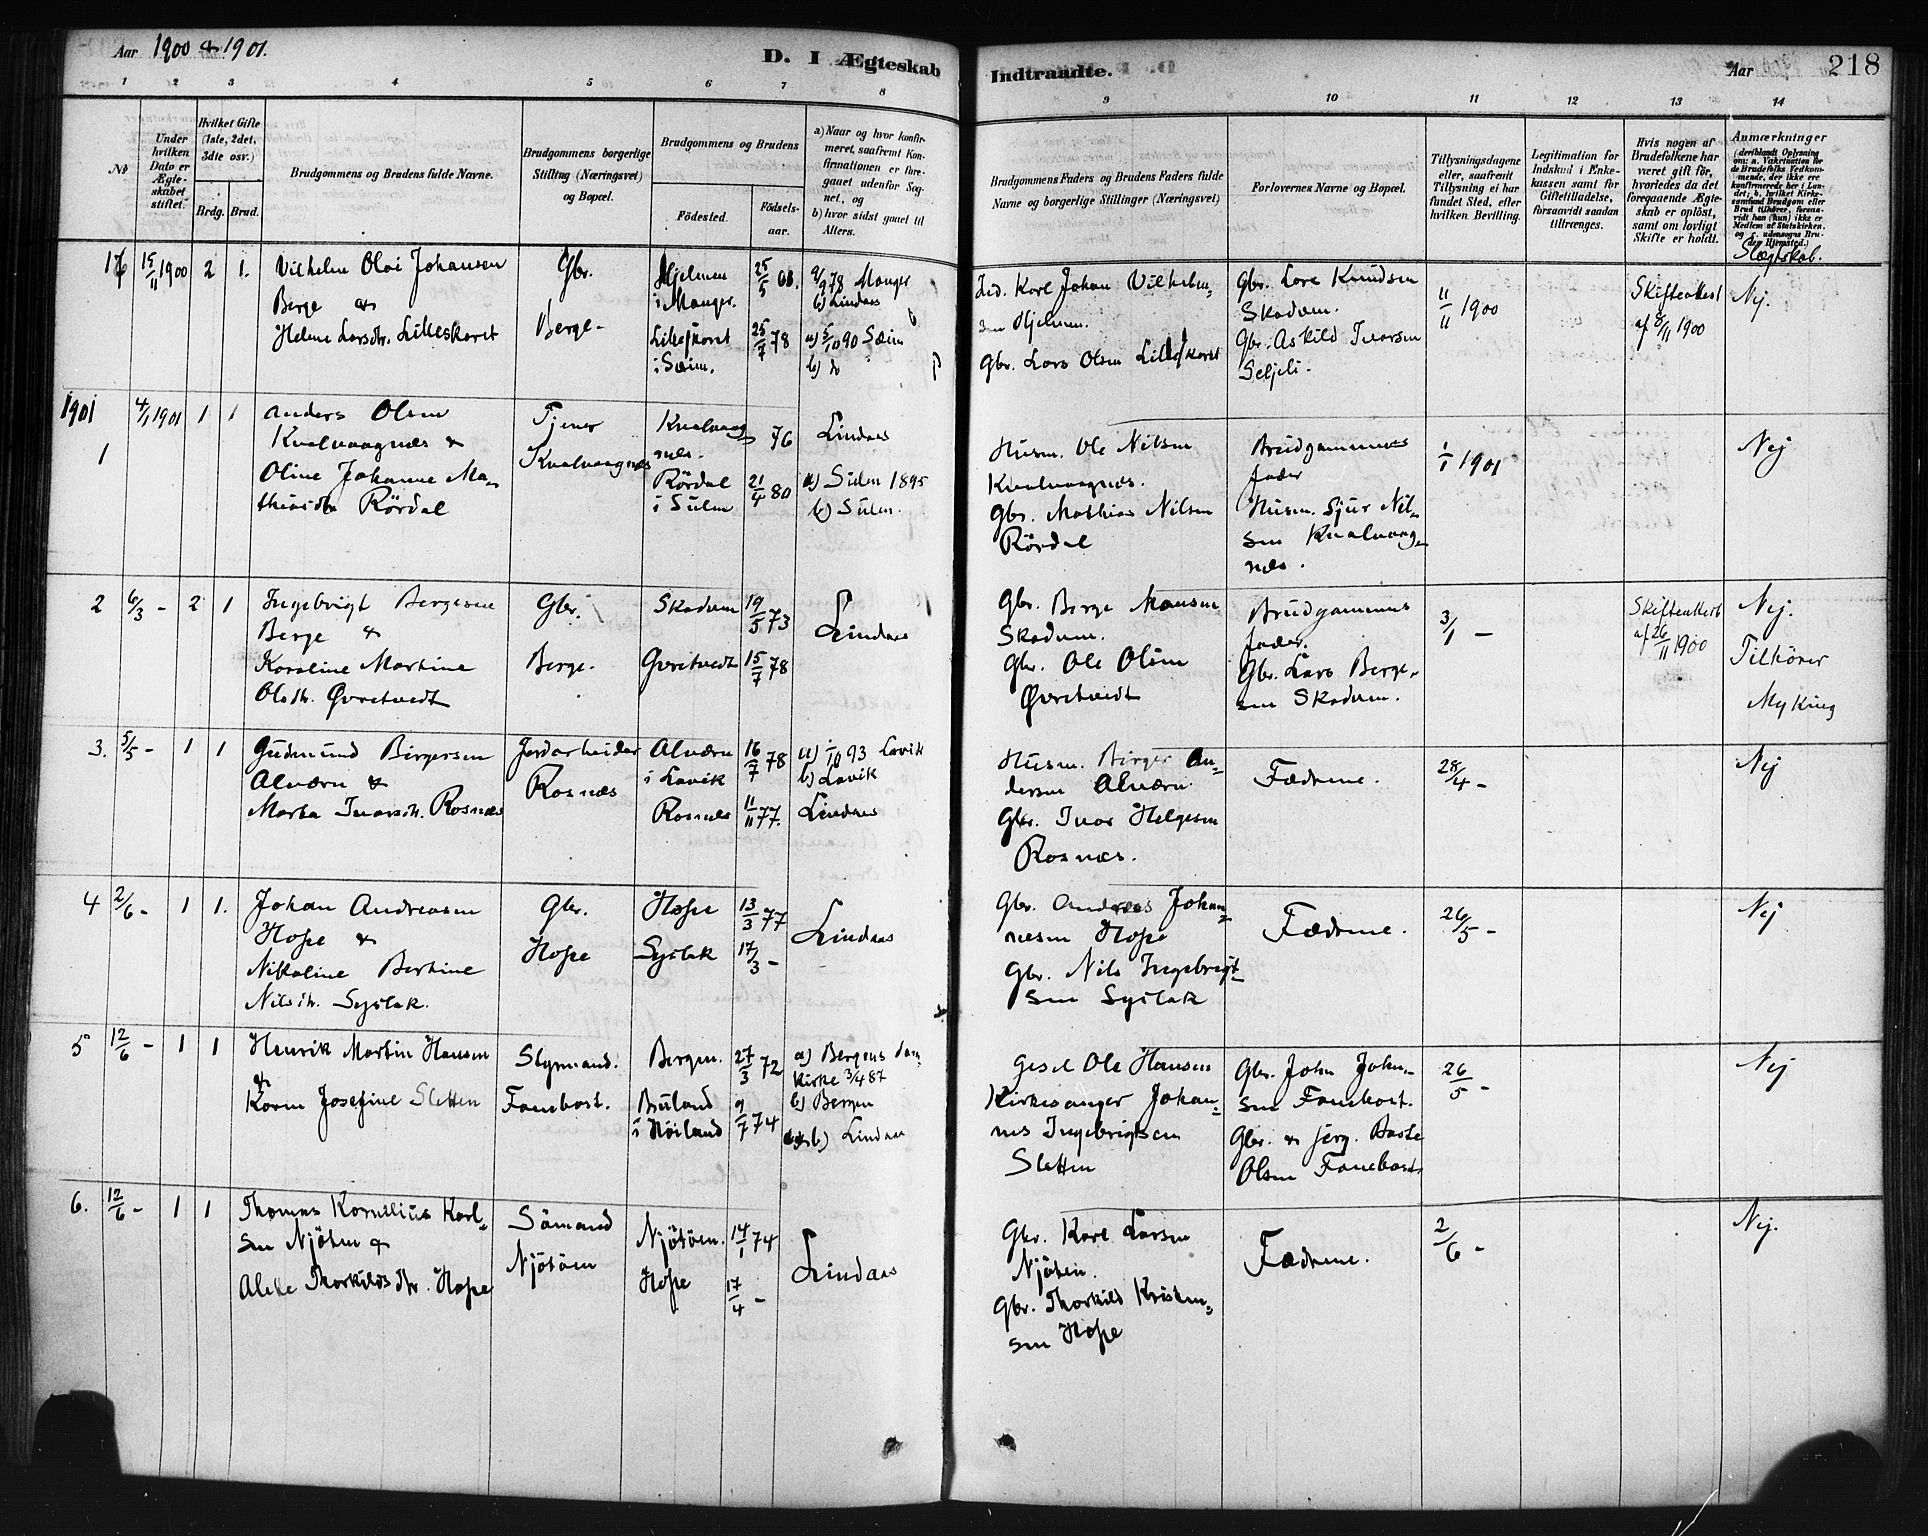 Aar 1900 & 1901.
D. I Ægteskab
Indtraadte.
Aar
218
1 2 3 4 5 6 7 8
9 10 11 12 13 14
No
Under hvilken Dato er Ægteskabet stiftet.
Hvilket Gifte (1ste, 2det, 3die osv.)
Brdg. Brud.
Brudgommens og Brudens fulde Navne.
Brudgommens borgerlige Stilling (Næringsvei) og Bopæl.
Brudgommens og Brudens
Fødested.
Fødsels-aar.
a) Naar og hvor konfirmeret, saafremt Konfirmationen er foregaaet udenfor Sognet, og
b) hvor sidst gaaet til Alters.
Brudgommens Faders og Brudens Faders fulde Navne og borgerlige Stillinger (Næringsvei)
Forlovernes Navne og Bopæl.
Tillysningsdagene eller, saafremt Tillysning ei har fundet Sted, efter hvilken Bevilling.
Legitimation for Indskud i Enkekassen samt for Giftetilladelse, forsaavidt saadan tiltrænges.
Hvis nogen af Brudefolkene har været gift før, hvorledes da det foregaaende Ægteskab er opløst, samt om lovligt Skifte er holdt.
Anmærkninger
Slægtskab.
15/11 1900 2 1.
Vilhelm Olai Johansen
Berge &
Helene Larsdtr. Lilleskaret
Gbr.
Berge-
Hjelmen
i Manger.
25/5
Lilleskaret
i Sæim.
25/7 78
78 Manger
b) Lindaas
a) 5/10 90 Sæim
b) do
Karl Johan Vilhelm-
sen Hjelmen.
Gbr. Lars Olsen Lilleskaret
Gbr. Lars Knudsen
Skodum.
Gbr. Askild Ivarsen
Seljeli.
11/11 1900
Skifteattest
af 8/11 1900
Nej.
1901
1
4/1 1901 1 1
Anders Olsen
Kvalvaagnæs &
Oline Johanne Ma-
thiasdtr Rördal
Tjener
Kvalvaagnæs
Kvalvaag
næs.
76
Rördal
i Sulen
21/4 80
Lindaas
a) Sulen 1895
b) Sulen.
Husm. Ole Nilsen
Kvalvaagnæs.
Gbr. Mathias Nilsen
Rördal
Brudgommens
fader
Husm. Sjur Nil-
sen Kvalvaag-
næs.
1/1 1901
Nej
2 6/3 - 2 1
Ingebrigt Bergesen
Berge &
Karoline Martine
Olsdtr. Øvretvedt
Gbr.
Berge.
Skodum 19/5 73
Øvretvedt 15/7 78
Lindaas
Gbr. Berge Monsen
Skodum.
Gbr. Ole Olsen
Øvretvedt
Brudgommens
fader.
Gbr. Lars Berge-
sen Skodum.
3/1 -
Skifteattest
af 26/11 1900
Nej.
Tilhörer
Myking
3. 5/5 - 1 1
Gudmund Birgersen
Alværn &
Marta Ivarsdtr. Rosnæs
Jordarbeider
Rosnæs
Alværn
i Lavik
16/7 78
Rosnæs 11/11 77.
93 Lavik
b) Lavik
Lindaas
Husm. Birger An-
dersen Alværn.
Gbr. Ivar Helgesen
Rosnæs.
Fædrene.
28/4 -
Nej
4 2/6 - 1 1.
Johan Andreasen
Hope &
Nikoline Bertine
Nilsdtr. Syslak.
Gbr.
Hope
Hope 13/3 77
Syslak 17/3 -
Lindaas
Gbr. Andreas Johan-
nesen Hope
Gbr. Nils Ingebrigt-
sen Syslak
Fædrene.
26/5 -
Nej
5 12/6 - 1 1
Henrik Martin Hansen
&
Karen Josefine Sletten
Styrmand.
Fanebost.
Bergen. 27/3 72
Bruland
i Höiland
9/7 74
a) Bergens Dom
kirke 3/4 87
b) Bergen
b) Lindaas
Gesel Ole Hansen
Kirkesanger Johan-
nes Ingebrigtsen
Sletten
Gbr. John John-
sen Fanebost.
Gbr. &
Olsen Fanebost
26/5 -
Nej
6. 12/6 - 1 1
Thomas Kornelius Karl-
sen Njöten &
Aleke Thorkildsdtr. Hope
Sömand
Njötöen
Njötöen. 14/1 74
Hope 17/4 -
Lindaas
Gbr. Karl Larsen
Njöten.
Gbr. Thorkild Kristen-
sen Hope
Fædrene.
2/6 -
Nej.